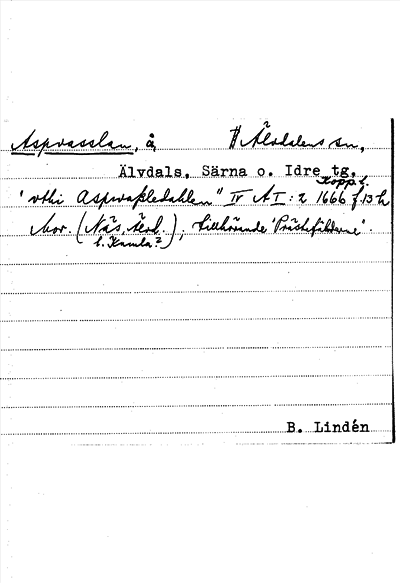 Aspvasslan, å, Älvdalens sn,
Älvdals, Särna o. Idre tg,
Kopp. l.
"vthi Aspwaßledahlen" IV A I : 2 1666 f. 13
Mor. (Näs, återl.); tillhörande "Prästefäbderne".
t. Kamla?)
B. Lindén